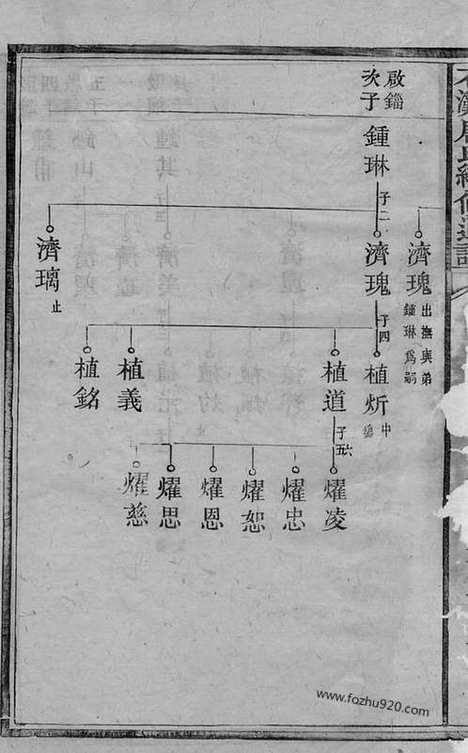 啟鎦
次子
鍾琳
子二
濟瑰
出撫與弟
鍾琳為嗣
濟瑰
子四
濟璃
止
植炘
中
植道
子六
植義
植銘
燿凌
燿忠
燿恕
燿恩
燿思
燿慈
www.fozhu920.com